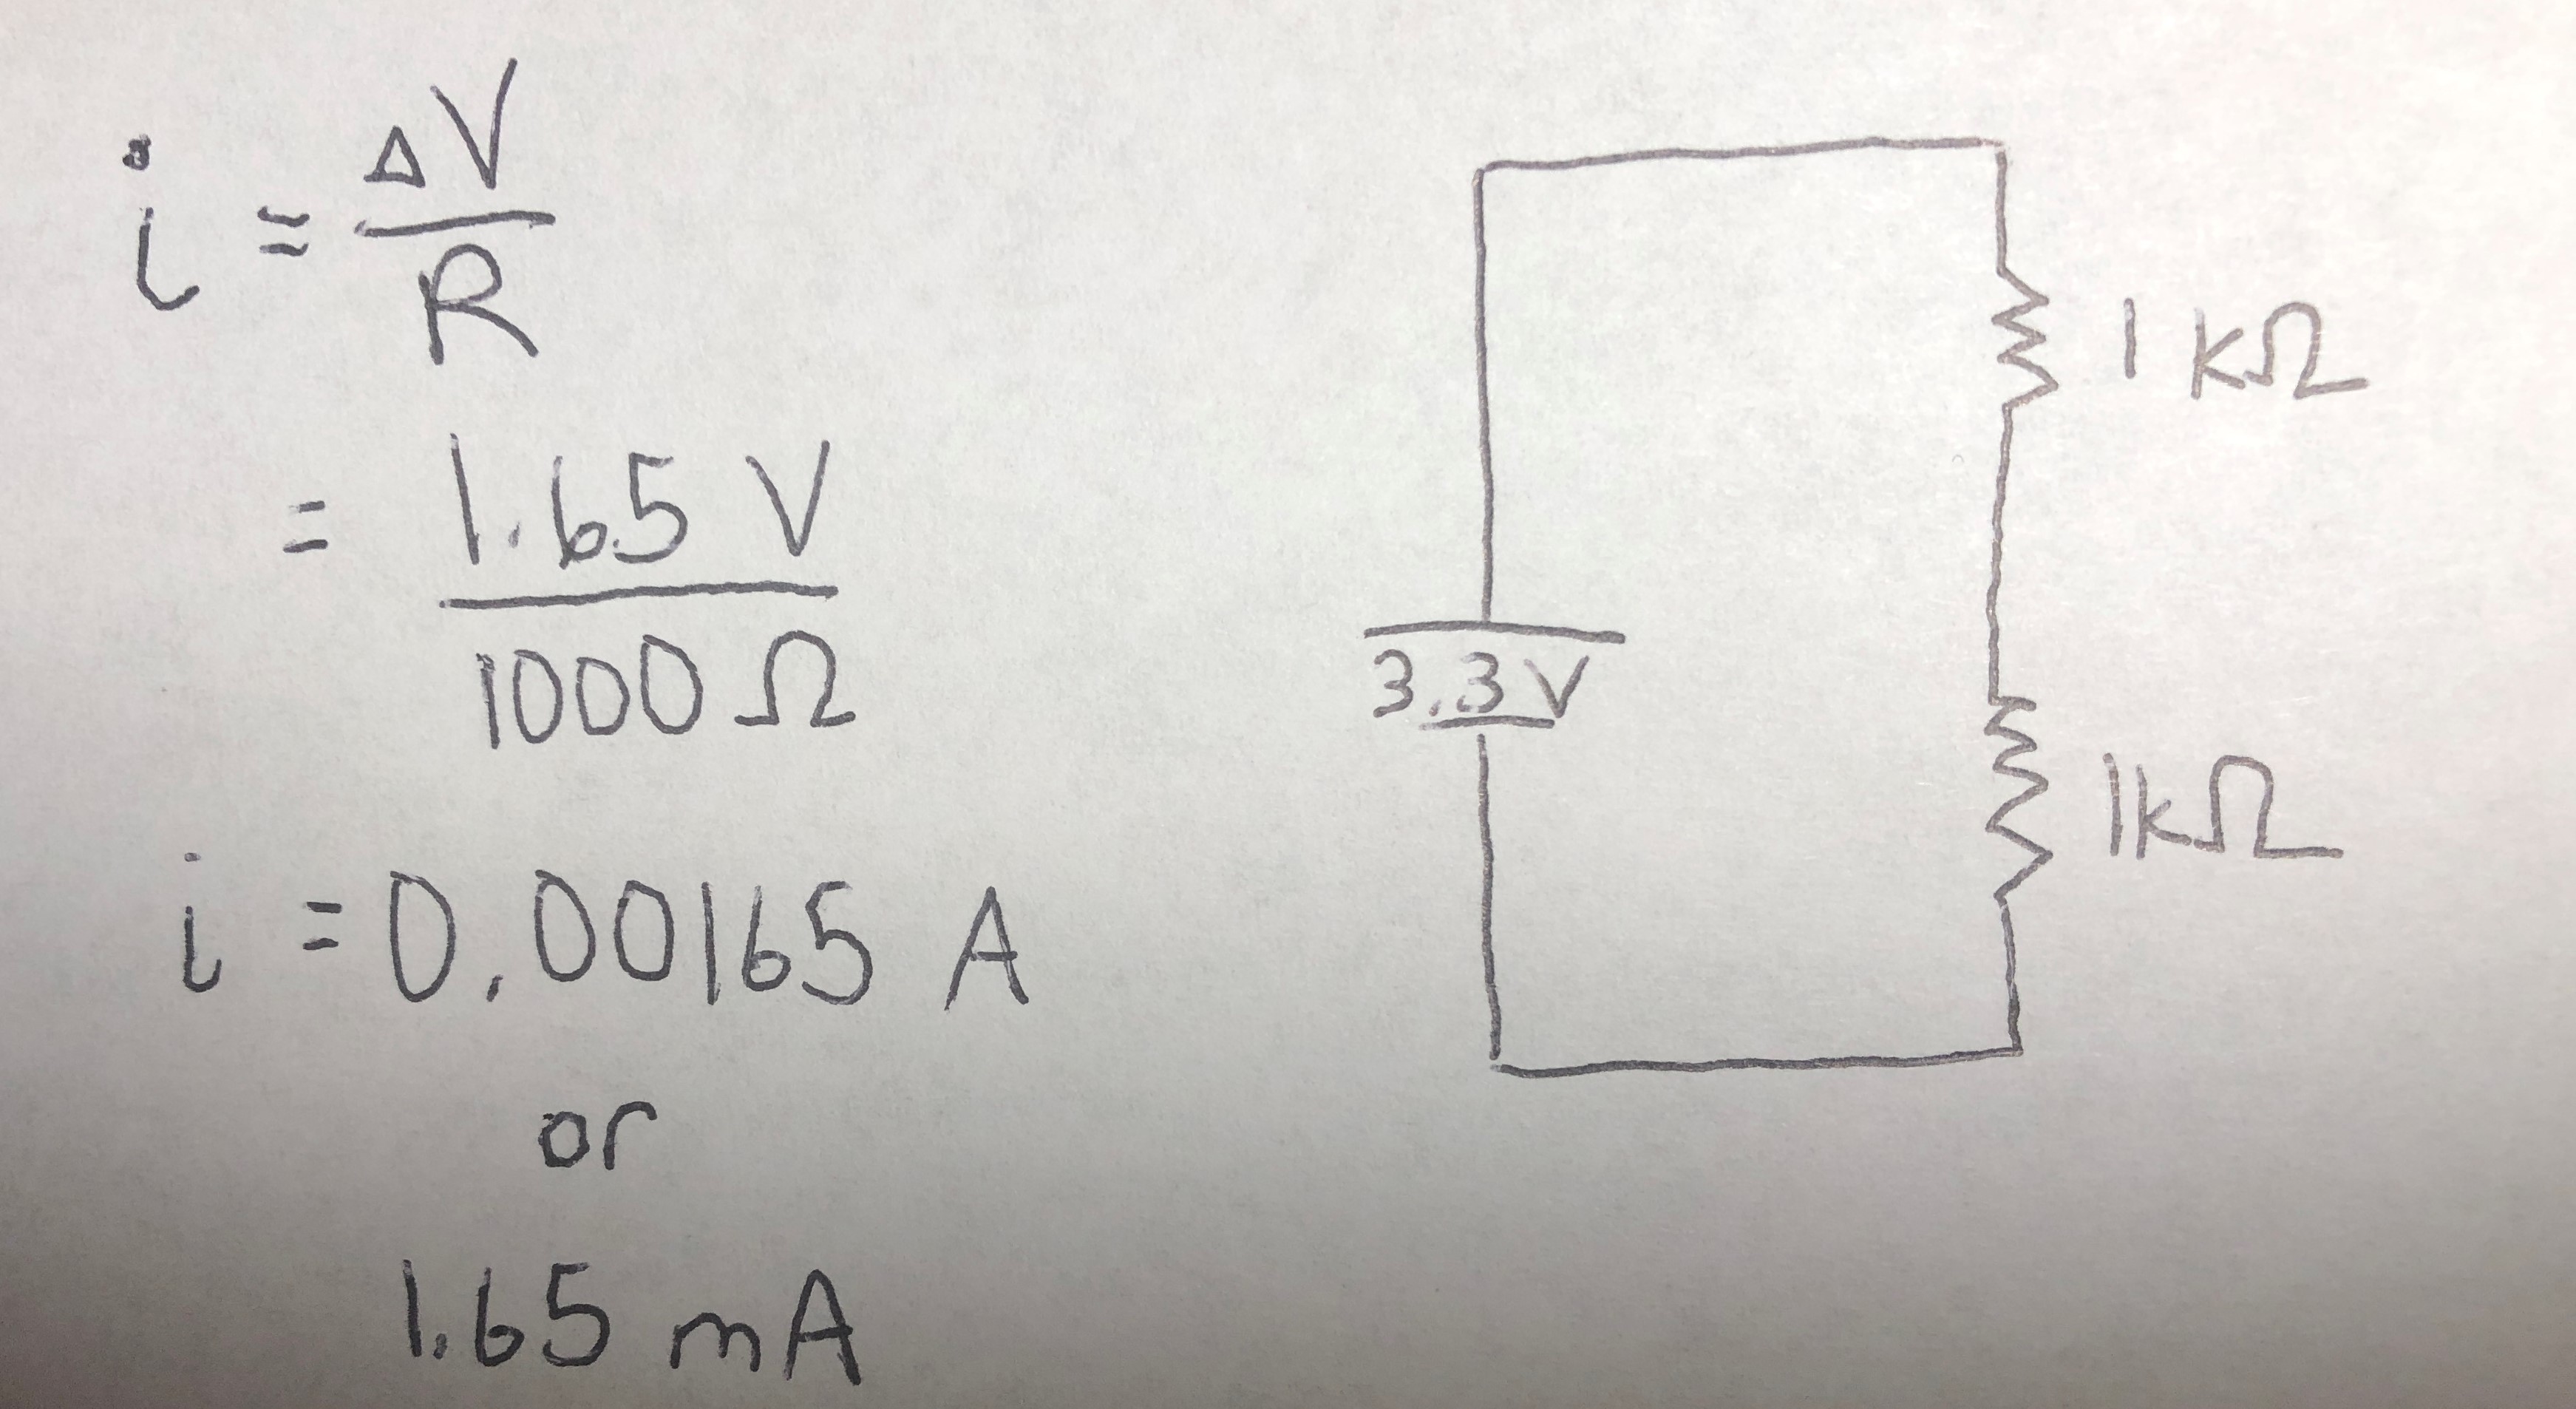 i = ΔV
R
= 1.65 V
1000 Ω
i = 0.00165 A
or
1.65 mA
1 kΩ
3.3 V
1kΩ